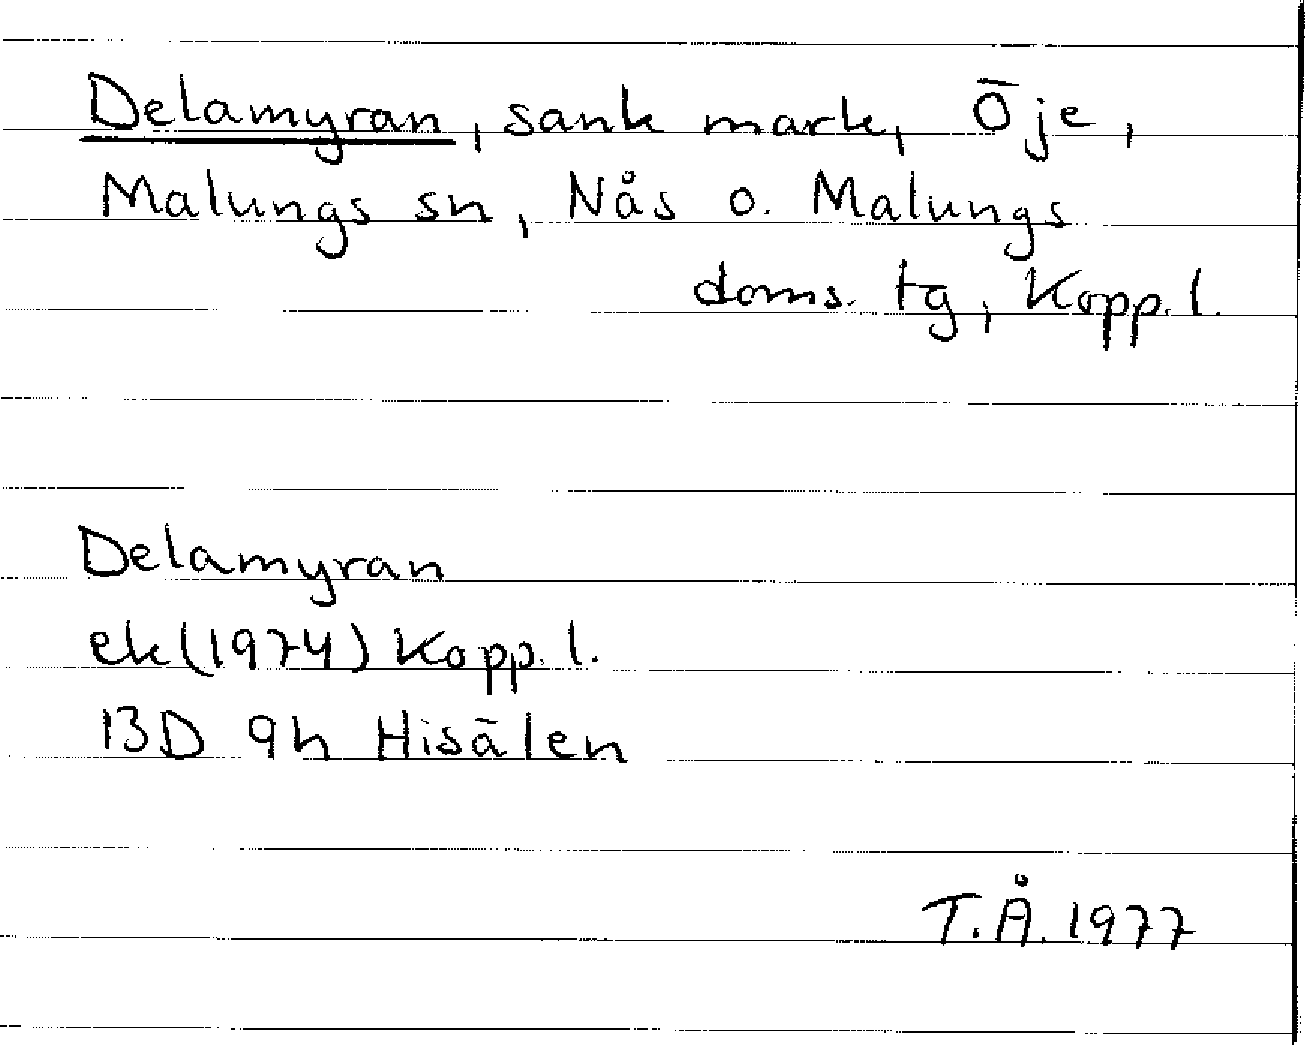 Delamyran, sank mark, Öje,
Malungs sn, Nås o. Malungs
doms. tg, Kopp. l.
Delamyran
ek (1974) Kopp. l.
13D 9h Hisälen
T.Å. 1977